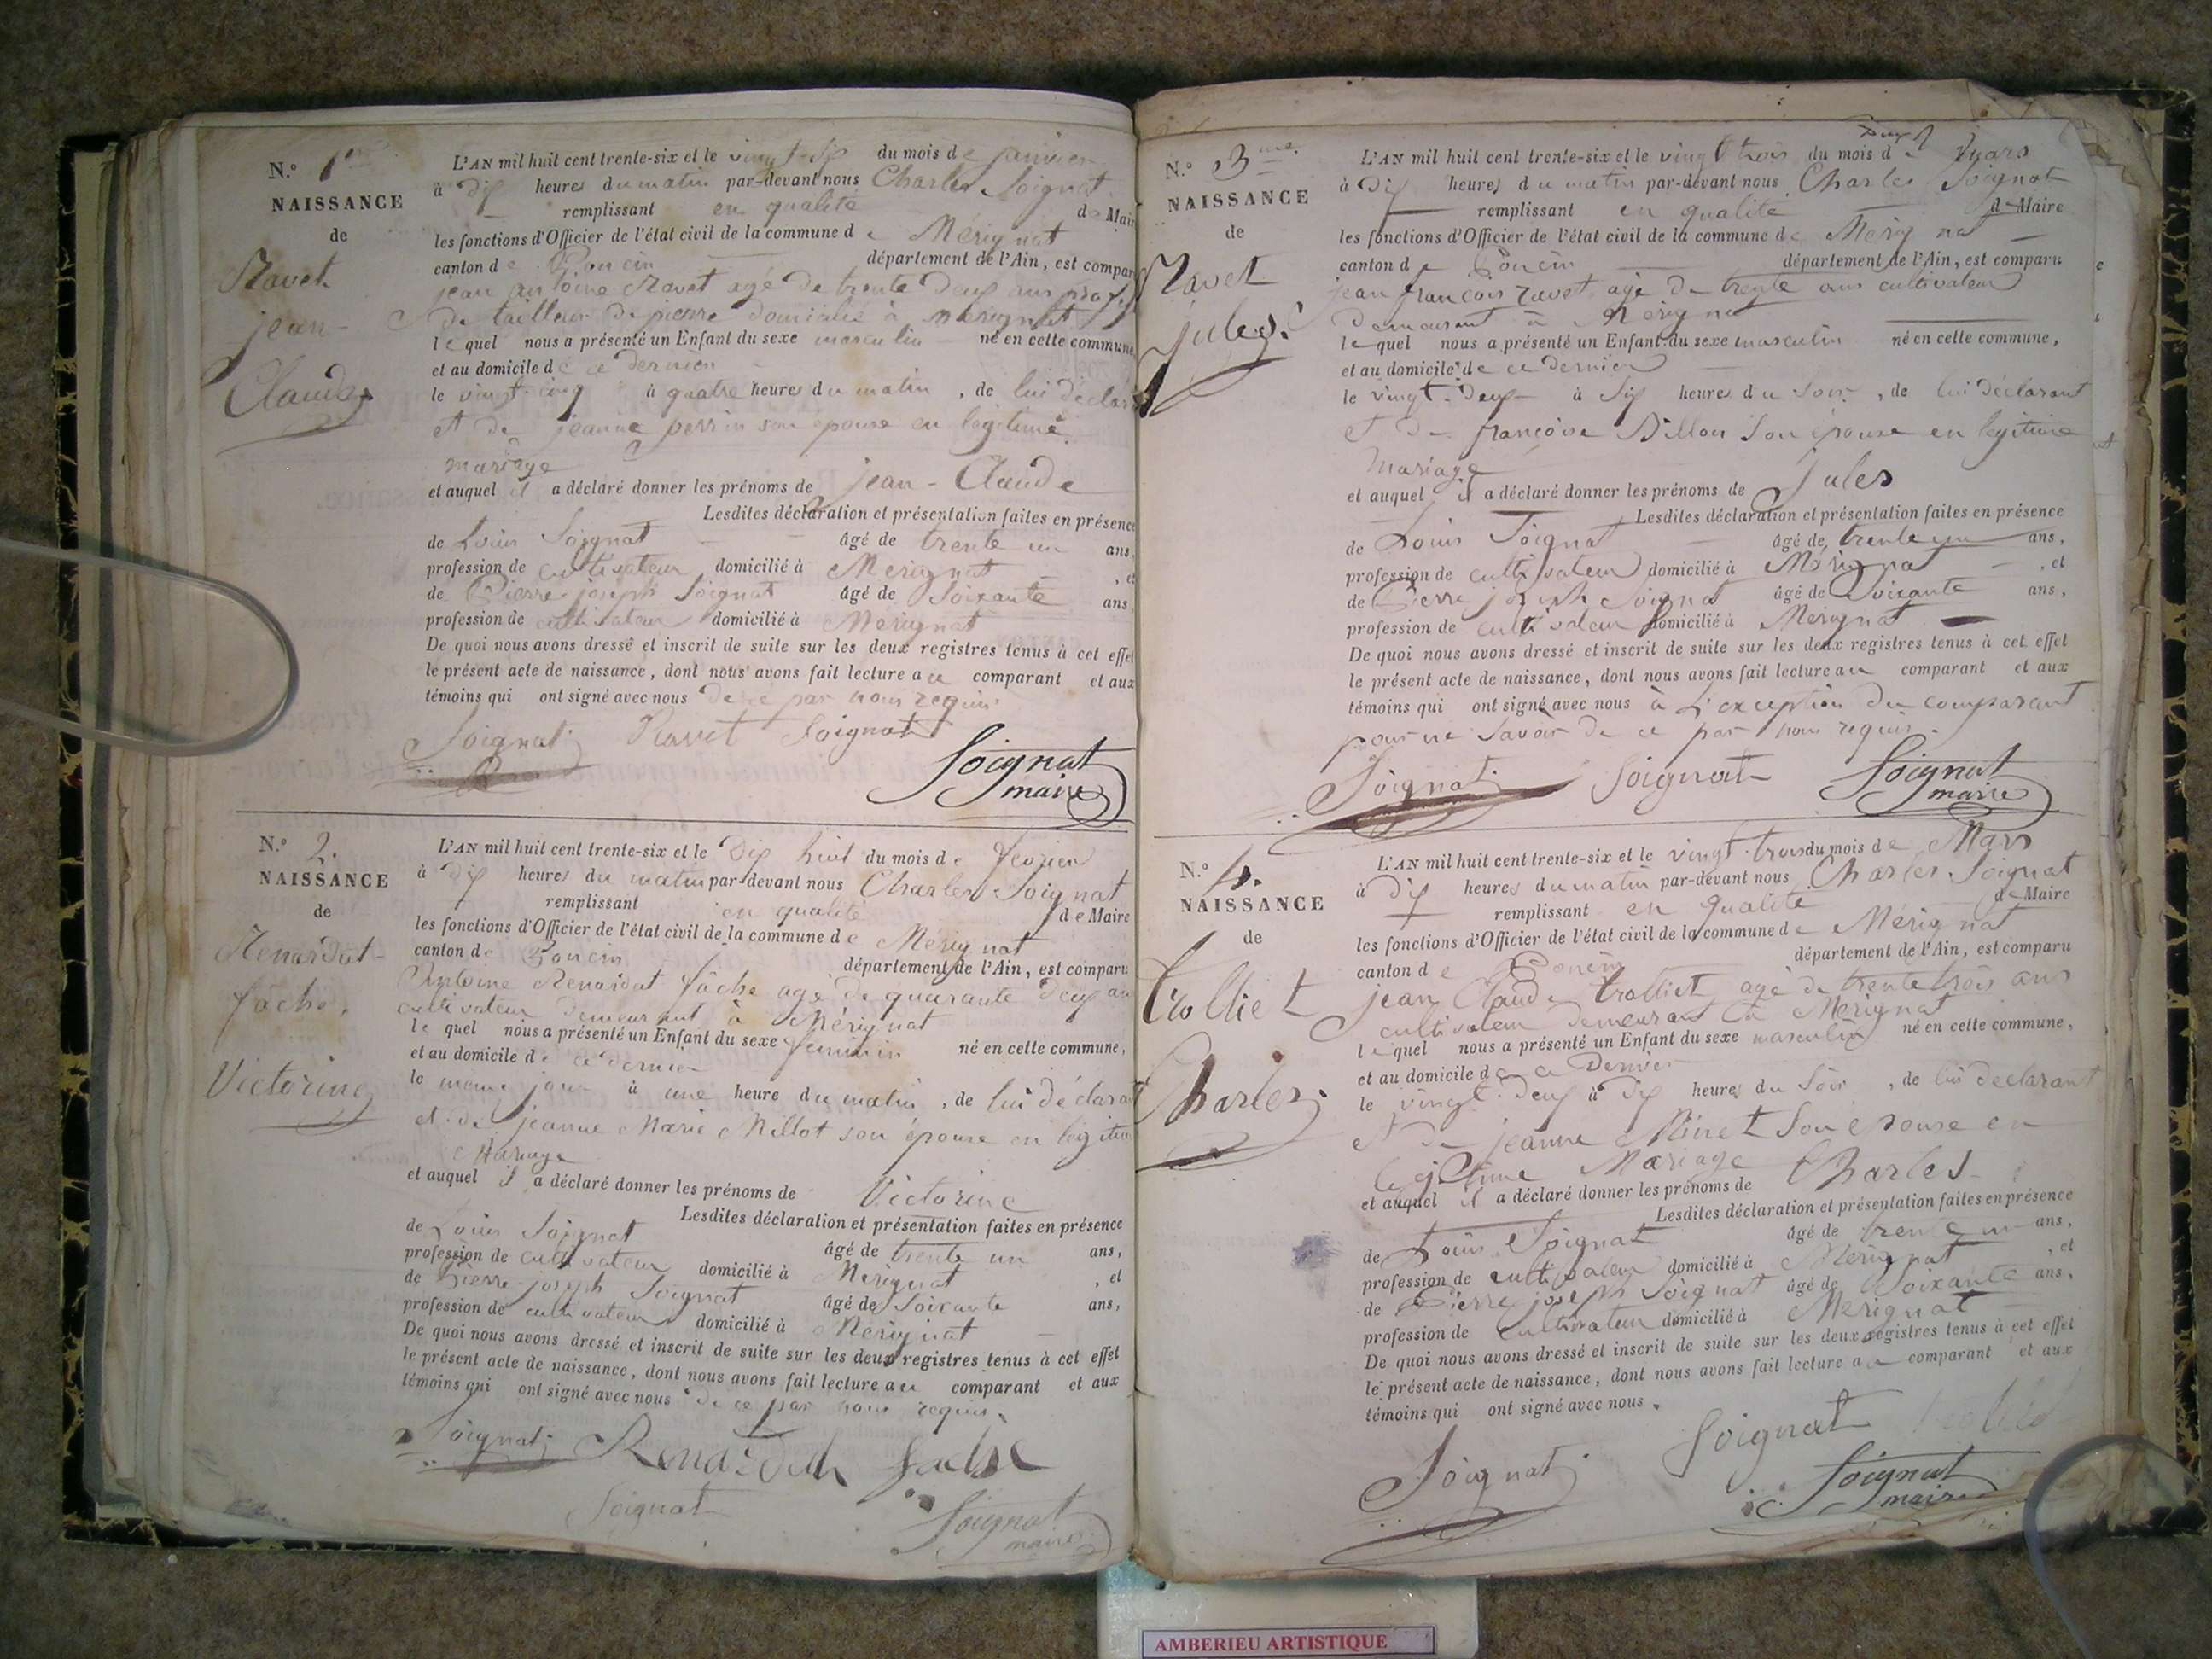 N.º 1er
NAISSANCE
de
Ravet
jean-
Claude
L'AN mil huit cent trente-six et le vingt six du mois de janvier
à dix heures du matin par-devant nous Charles Soignat
remplissant en qualité de Mair
les fonctions d'Officier de l'état civil de la commune de Mérignat
canton de Poncin département de l'Ain, est compar
jean antoine Ravet agé de trente deux ans
de tailleur de pierre domicilié à Mérignat
lequel nous a présenté un Enfant du sexe masculin né en cette commune
et au domicile de ce dernier
le vingt-cinq à quatre heures du matin, de lui déclar
et de jeanne perrin son épouse en légitime
mariage
et auquel il a déclaré donner les prénoms de jean-Claude
Lesdites déclaration et présentation faites en présence
de Louis Soignat âgé de trente un ans,
profession de cultivateur domicilié à Mérignat, et
de Pierre joseph Soignat âgé de Soixante ans,
profession de cultivateur domicilié à Mérignat
De quoi nous avons dressé et inscrit de suite sur les deux registres tenus à cet effet
le présent acte de naissance, dont nous avons fait lecture au comparant et aux
témoins qui ont signé avec nous de ce par nous requis.
Soignat Ravet Soignat
Soignat
maire
N.º 2.
NAISSANCE
de
Renardat-
fache,
Victorine
L'AN mil huit cent trente-six et le dix huit du mois de fevrier
à dix heures du matin par-devant nous Charles Soignat
remplissant en qualité de Maire
les fonctions d'Officier de l'état civil de la commune de Mérignat
canton de Poncin département de l'Ain, est comparu
Antoine Renardat fâche agé de quarante deux an
cultivateur demeurant à Mérignat
lequel nous a présenté un Enfant du sexe feminin né en cette commune,
et au domicile de ce dernier
le meme jour à une heure du matin, de lui déclarant
et de jeanne Marie Millot son épouse en légitime
Mariage
et auquel il a déclaré donner les prénoms de Victorine
Lesdites déclaration et présentation faites en présence
de Louis Soignat âgé de trente un ans,
profession de cultivateur domicilié à Mérignat, et
de Pierre joseph Soignat âgé de Soixante ans,
profession de cultivateur domicilié à Mérignat
De quoi nous avons dressé et inscrit de suite sur les deux registres tenus à cet effet
le présent acte de naissance, dont nous avons fait lecture au comparant et aux
témoins qui ont signé avec nous de ce par nous requis.
Soignat Renardat fache
Soignat Soignat
maire
N.º 3me
NAISSANCE
de
Ravet
jules.
L'AN mil huit cent trente-six et le vingt trois du mois de Mars
à dix heures du matin par-devant nous Charles Soignat
remplissant en qualité de Maire
les fonctions d'Officier de l'état civil de la commune de Mérignat
canton de Poncin département de l'Ain, est comparu
jean françois ravet agé de trente ans cultivateur
demeurant à Mérignat
lequel nous a présenté un Enfant du sexe masculin né en cette commune,
et au domicile de ce dernier
le vingt-deux à Six heures du Soir, de lui déclarant
et de françoise Billon Son épouse en légitime
Mariage
et auquel il a déclaré donner les prénoms de Jules
Lesdites déclaration et présentation faites en présence
de Louis Soignat âgé de trente un ans,
profession de cultivateur domicilié à Mérignat, et
de Pierre joseph Soignat âgé de Soixante ans,
profession de cultivateur domicilié à Mérignat
De quoi nous avons dressé et inscrit de suite sur les deux registres tenus à cet effet
le présent acte de naissance, dont nous avons fait lecture au comparant et aux
témoins qui ont signé avec nous à L'exception du comparant
pour ne Savoir de ce par nous requis.
Soignat Soignat Soignat
maire
N.º 4.
NAISSANCE
de
Trolliet
Charles
L'AN mil huit cent trente-six et le vingt-trois du mois de Mars
à dix heures du matin par-devant nous Charles Soignat
remplissant en qualité de Maire
les fonctions d'Officier de l'état civil de la commune de Mérignat
canton de Poncin département de l'Ain, est comparu
jean Claude trolliet agé de trente trois ans
cultivateur demeurant à Mérignat
lequel nous a présenté un Enfant du sexe masculin né en cette commune,
et au domicile de ce Dernier
le vingt-deux à dix heures du Soir, de lui déclarant
et de jeanne Minet Son épouse en
légitime Mariage
et auquel il a déclaré donner les prénoms de Charles
Lesdites déclaration et présentation faites en présence
de Louis Soignat âgé de trente un ans,
profession de cultivateur domicilié à Mérignat, et
de Pierre joseph Soignat âgé de Soixante ans,
profession de cultivateur domicilié à Mérignat
De quoi nous avons dressé et inscrit de suite sur les deux registres tenus à cet effet
le présent acte de naissance, dont nous avons fait lecture au comparant et aux
témoins qui ont signé avec nous.
Soignat Soignat
Soignat
maire
AMBERIEU ARTISTIQUE